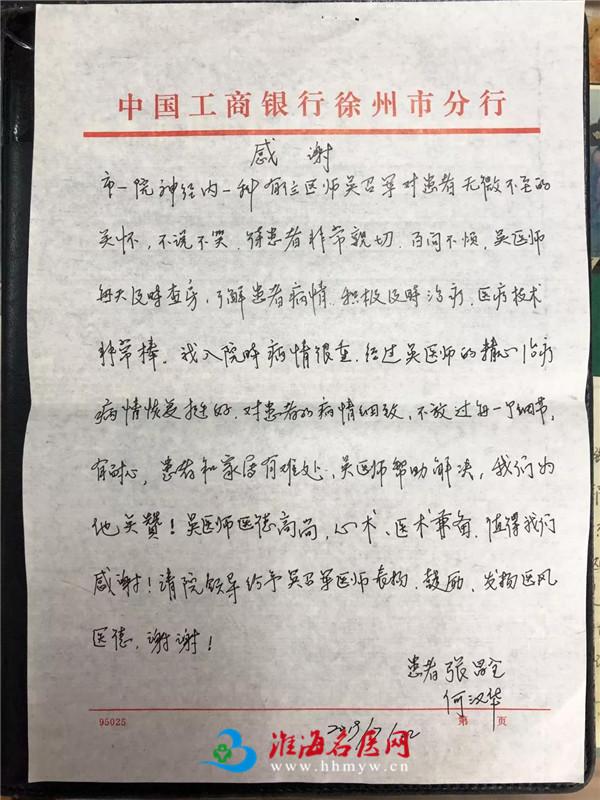 中国工商银行徐州市分行
感谢
市一院神经内一科有位医师吴召军对患者无微不至的
关怀，不说不笑，待患者非常亲切，百问不烦，吴医师
每天及時查房，了解患者病情，积极及時治疗，医疗技术
非常棒。我入院時病情很重，经过吴医师的精心治疗
病情恢复挺好，对患者的病情细致，不放过每一个细节，
有耐心，患者和家属有难处，吴医师帮助解决，我们为
他关贊！吴医师医德高尚，心术、医术兼备，值得我们
感谢！请院领导给予吴召军医师表扬，鼓励，发扬医风
医德，谢谢！
患者 张
何汉华
95025
第 页
淮海名医网
www.hhmyw.cn